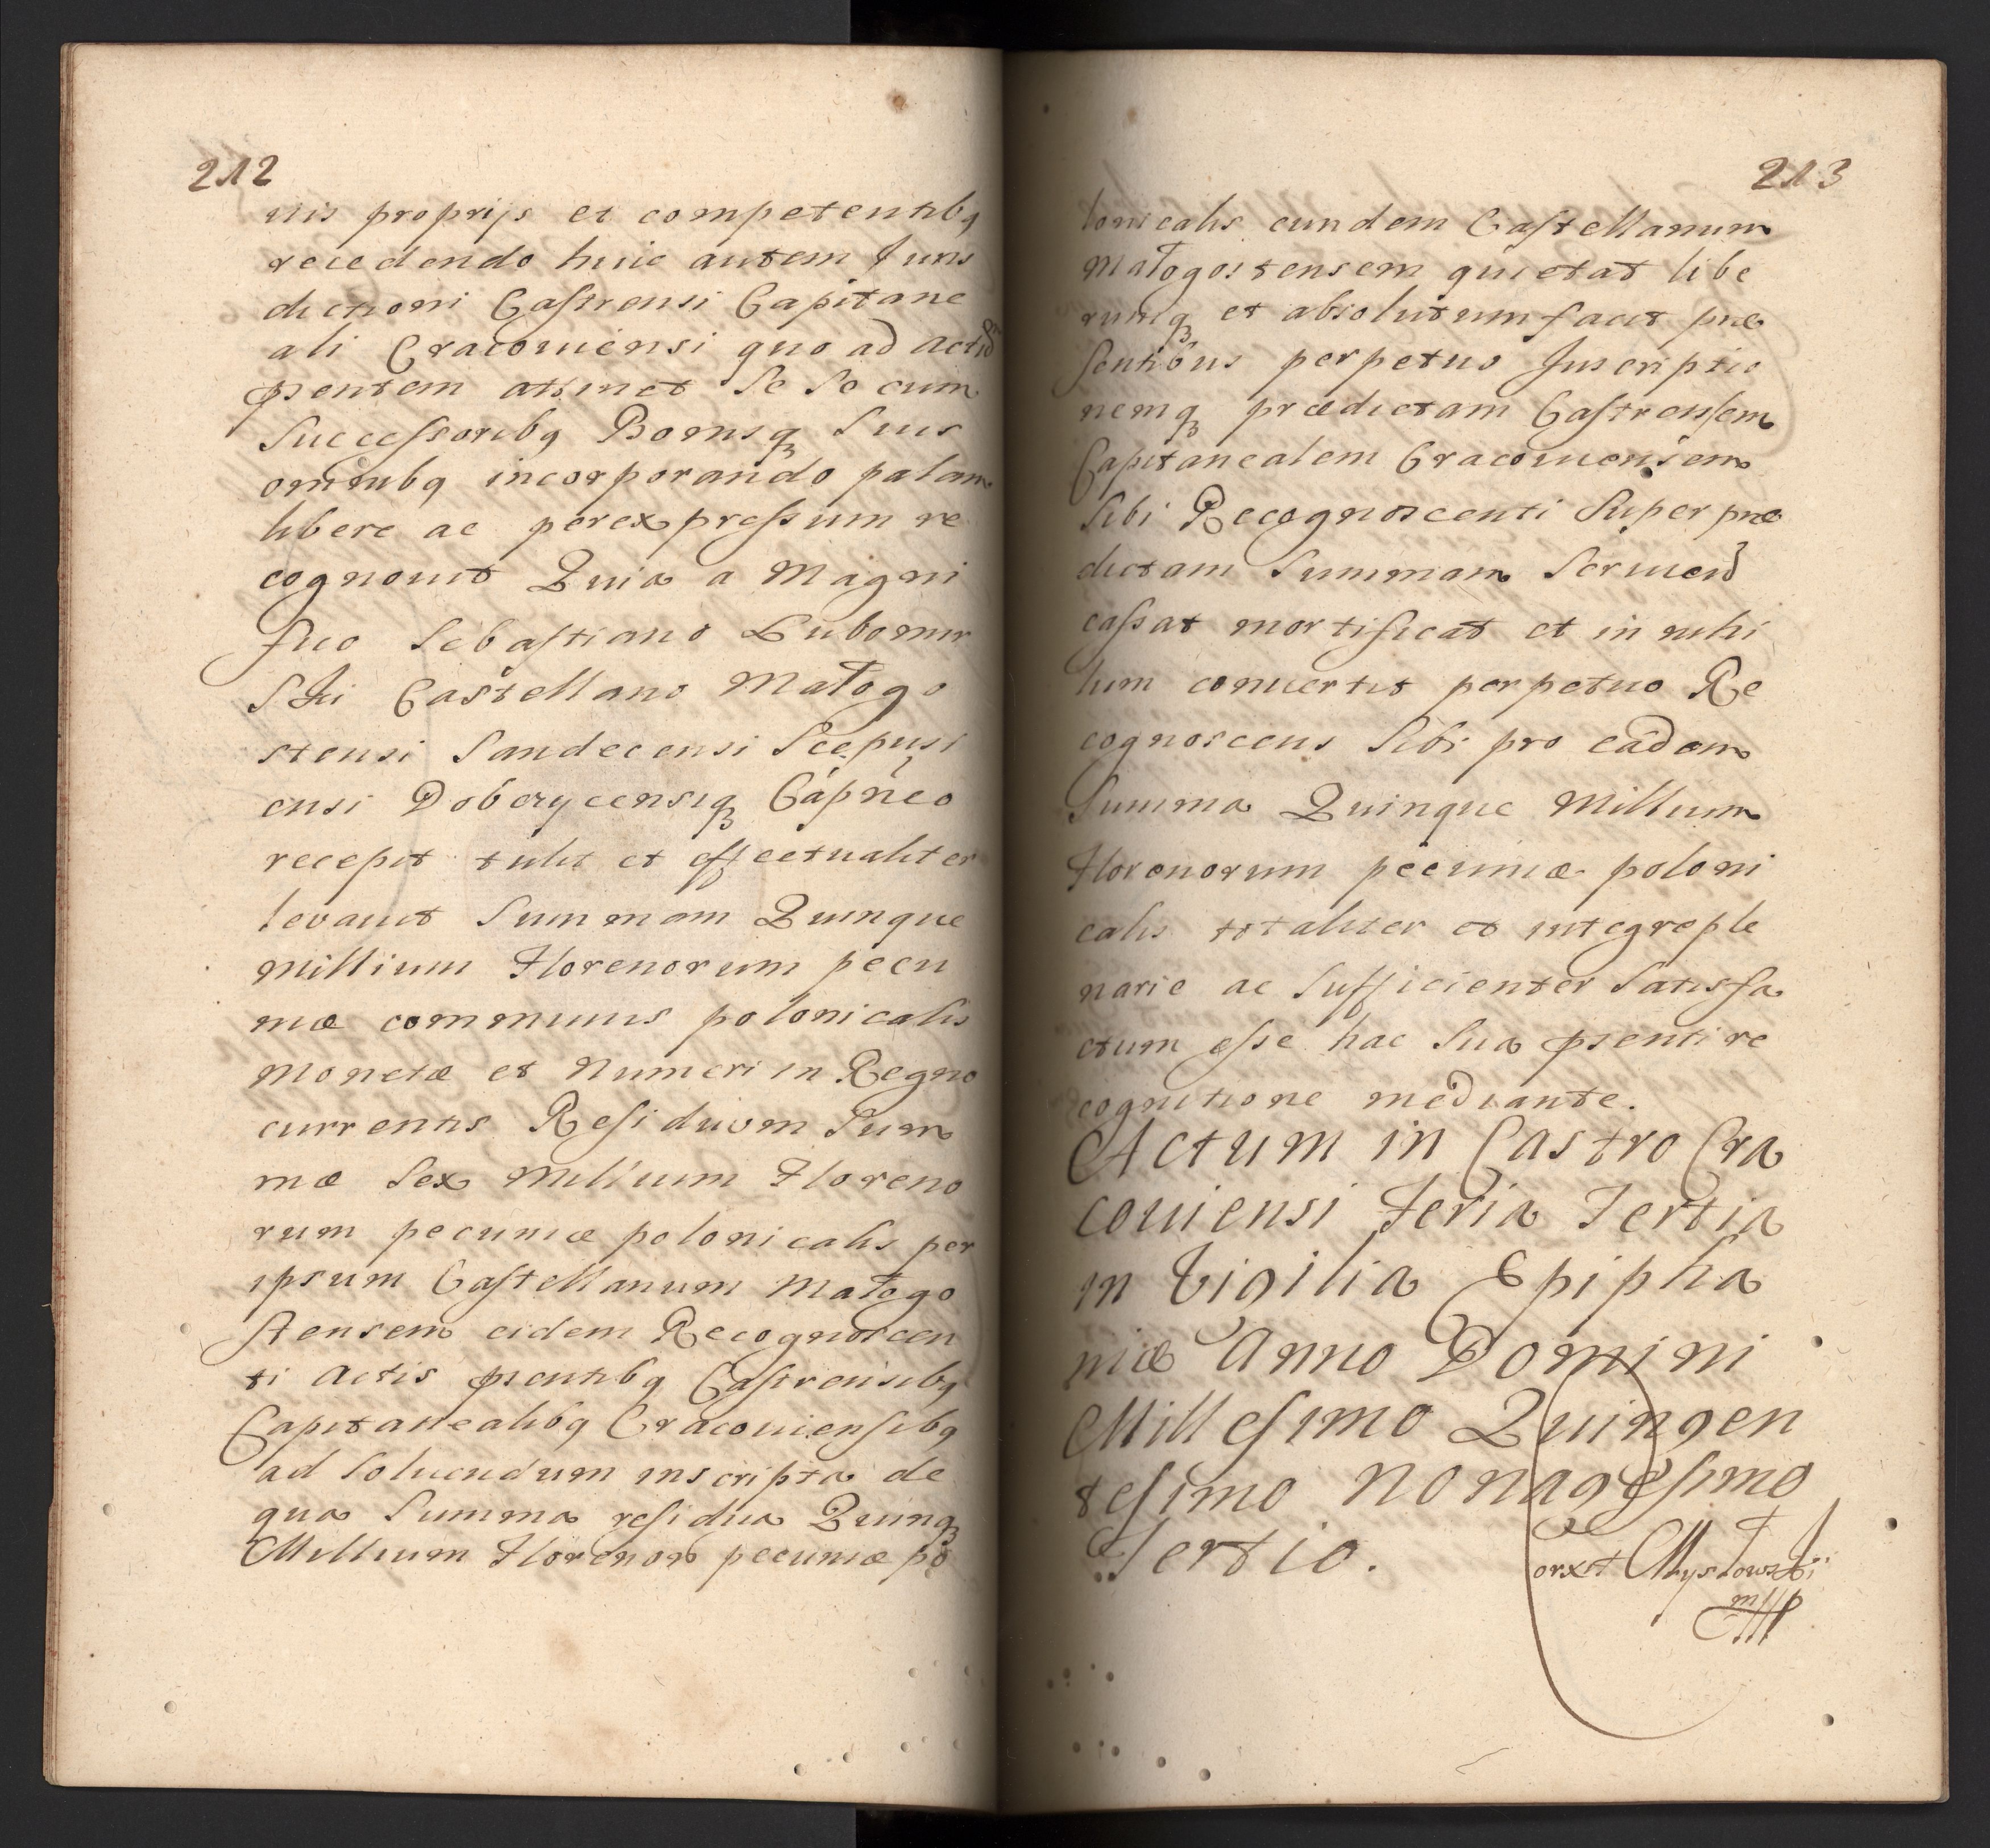 212
nis proprijs et competentibq
recedendo huic autem Juris
dictioni Castrensi Capitane
ali Cracouiensi quo ad actũ
pɲsentem attinet Se Se cum
Successoribq Bonisq Suis
omnibq incorporando palam
libere ac per expressum re
cognouit Quia a Magni
fico Sebastiano Lubomir
Ski Castellano Małogo
stensi Sandecensi Scepusi
ensi Dobczycensiq Capneo
recepit tulit et effectualiter
levauit Summam Quinque
millium Florenorum pecu
niæ communis polonicalis
Monetæ et Numeri in Regno
currentis Residuam Sum
mæ Sex Millium Floreno
rum pecuniæ polonicalis per
ipsum Castellanum Małogo
stensem eidem Recognoscen
ti Actis psentibq Castrensibq
Capitanealibq Cracouiensibq
ad Soluendum inscriptæ de
qua Summa residua Quinq
Millium Florenorũ pecuniæ po
213
lonicalis eundem Castellanum
Małogostensem quietat libe
rumq et absolutum facit præ
sentibus perpetuo Inscriptio
nemq prædictam Castrensem
Capitanealem Cracouiensem
Sibi Recognoscenti Super præ
dictam Summam Seruien̄
cassat mortificat et in nihi
lum conuertit perpetuo Re
cognoscens Sibi pro eadem
Summa Quinque Millium
Florenorum pecuniæ poloni
calis totaliter et integre ple
narie ac Sufficienter Satisfa
ctum esse hac Sua psenti re
cognitione mediante.
Actum in Castro Cra
couiensi Feria Tertia
in Vigilia Epipha
niæ Anno Domini
Millesimo Quingen
tesimo Nonagesimo
Tertio.
corxt Mysłowski
mpp